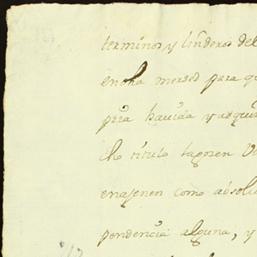 terminos y linderos del
en dha merced para q
pra havida y adquir
cho titulo tagoren V
enagenen como absolu
pendencia alguna, y